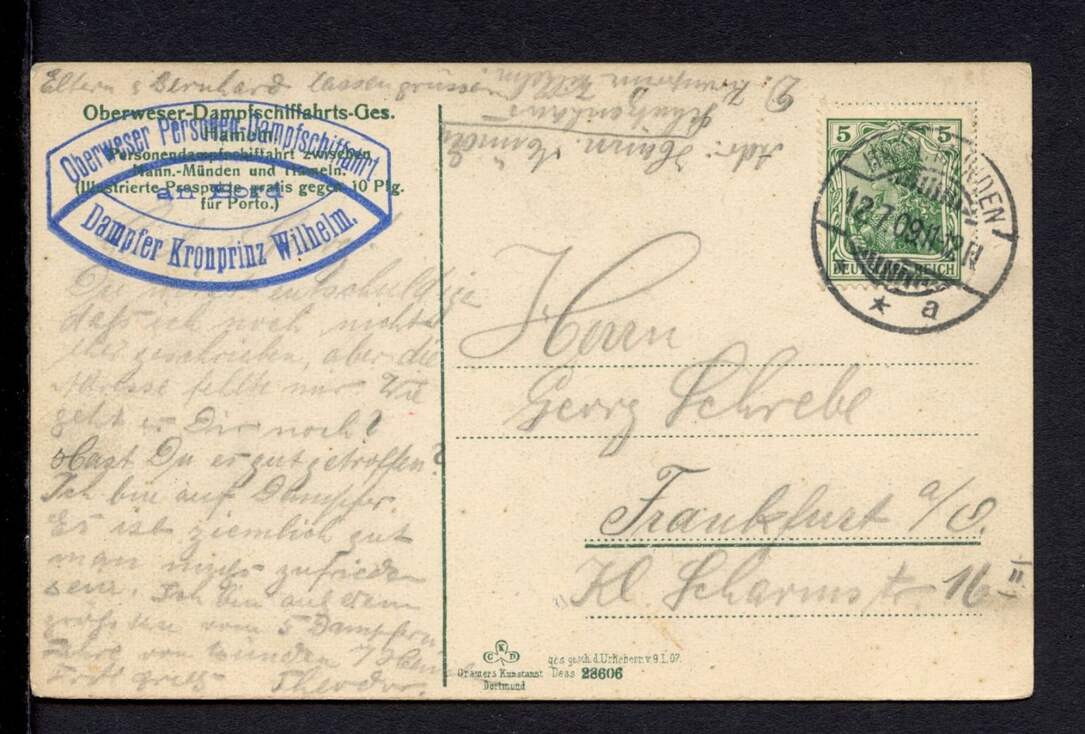 Eltern & Bernhard lassen grüssen.
Oberweser-Dampfschiffahrts-Ges.
Hameln.
Personendampfschiffahrt zwischen
Hann.-Münden und Hameln.
(Illustrierte Prospekte gratis gegen 10 Pfg.
für Porto.)
Oberweser Personen-Dampfschiffahrt.
an Bord
Dampfer Kronprinz Wilhelm.
Du entschuldige
daß ich noch nicht
eher geschrieben, aber die
Adresse fellte mir. Wie
geht er Dir noch?
Hast Du er gut getroffen?
Ich bin auf Dampfer.
Es ist ziemlich gut
man zufrieden
sein. Ich bin auf dem
größten vom 5 Dampfern
von
Theodor.
Adr: Münden
D. Kronprinz Wilhelm
5 5
DEUTSCHES REICH
MÜNDEN
12.7.09.11-12N
* a
Herrn
Georg Schrebe
Frankfurt a/O.
Kl. Scharrnstr 16 II.
C K D
Cramers Kunstanst
Dortmund
ges. gesch. d. Urheberr. v. 9.1.07.
Dess 28606